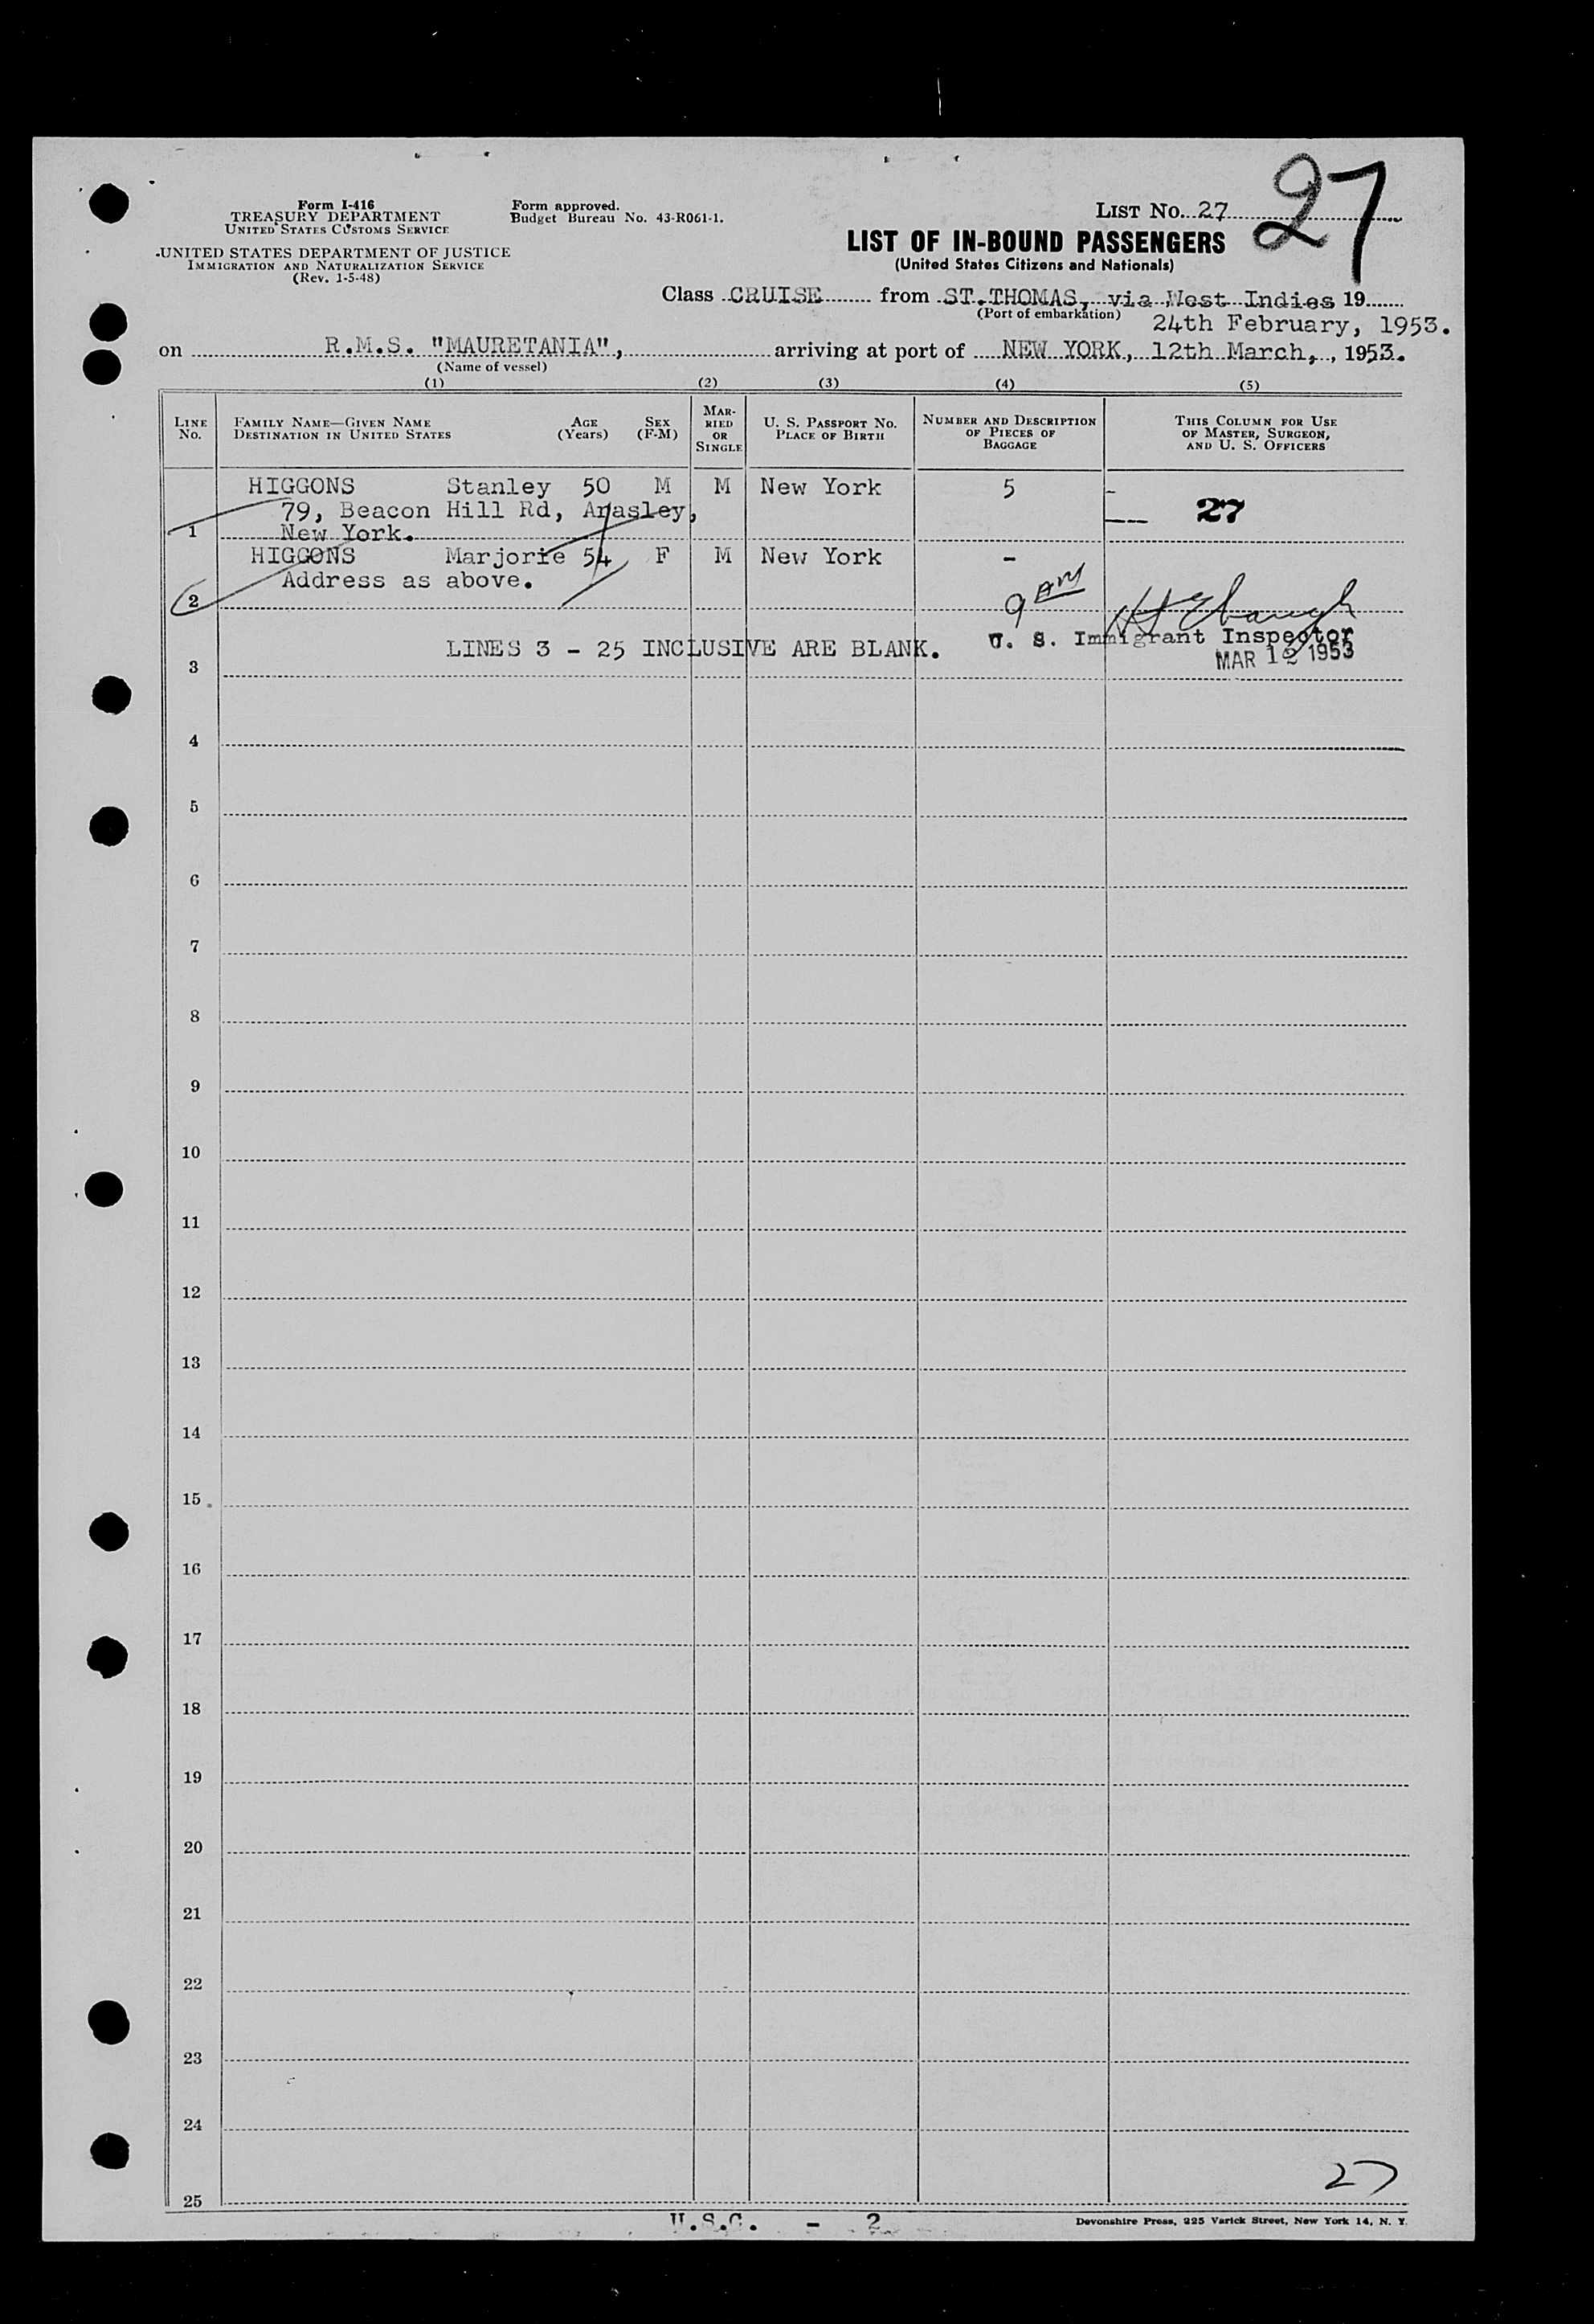 27
Form I-416
TREASURY DEPARTMENT
UNITED STATES CUSTOMS SERVICE
UNITED STATES DEPARTMENT OF JUSTICE
IMMIGRATION AND NATURALIZATION SERVICE
(Rev. 1-5-48)
Form approved.
Budget Bureau No. 43-R061-1.
LIST No. 27
LIST OF IN-BOUND PASSENGERS
(United States Citizens and Nationals)
Class CRUISE from ST.THOMAS, via West Indies 19
(Port of embarkation) 24th February, 1953.
on R.M.S. "MAURETANIA", arriving at port of NEW YORK, 12th March, , 1953.
(Name of vessel)
(1) (2) (3) (4) (5)
LINE No. FAMILY NAME—GIVEN NAME DESTINATION IN UNITED STATES AGE (Years) SEX (F-M) MARRIED OR SINGLE U. S. PASSPORT NO. PLACE OF BIRTH NUMBER AND DESCRIPTION OF PIECES OF BAGGAGE THIS COLUMN FOR USE OF MASTER, SURGEON, AND U. S. OFFICERS
HIGGONS Stanley 50 M M New York 5 -
79, Beacon Hill Rd, Anasley, 27
1 New York.
HIGGONS Marjorie 54 F M New York -
Address as above.
2 9 AM
LINES 3 - 25 INCLUSIVE ARE BLANK. U. S. Immigrant Inspector
3 MAR 12 1953
4
5
6
7
8
9
10
11
12
13
14
15
16
17
18
19
20
21
22
23
24
27
25
U.S.C. - 2
Devonshire Press, 225 Varick Street, New York 14, N. Y.